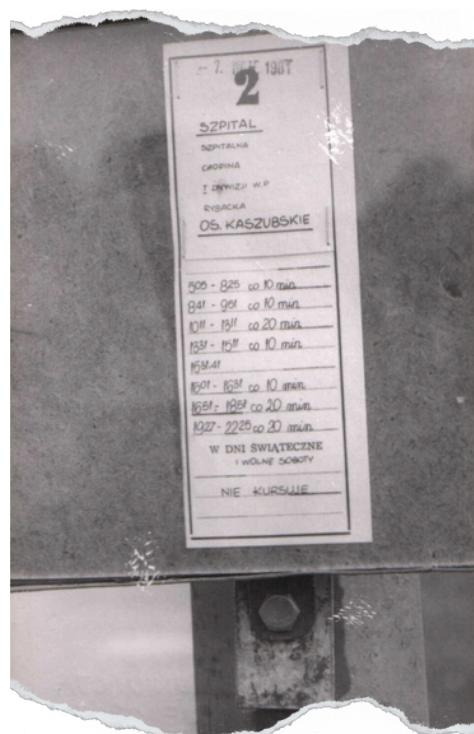 2
SZPITAL
SZPITALNA
CHOPINA
I DYWIZJI W.P
RYBACKA
OS. KASZUBSKIE
505 - 825 co 10 min
841 - 951 co 10 min
1011 - 1311 co 20 min
1331 - 1511 co 10 min
1531.41
1601 - 1631 co 10 min
1651 - 1851 co 20 min
1927 - 2225 co 20 min
W DNI ŚWIĄTECZNE
I WOLNE SOBOTY
NIE KURSUJE